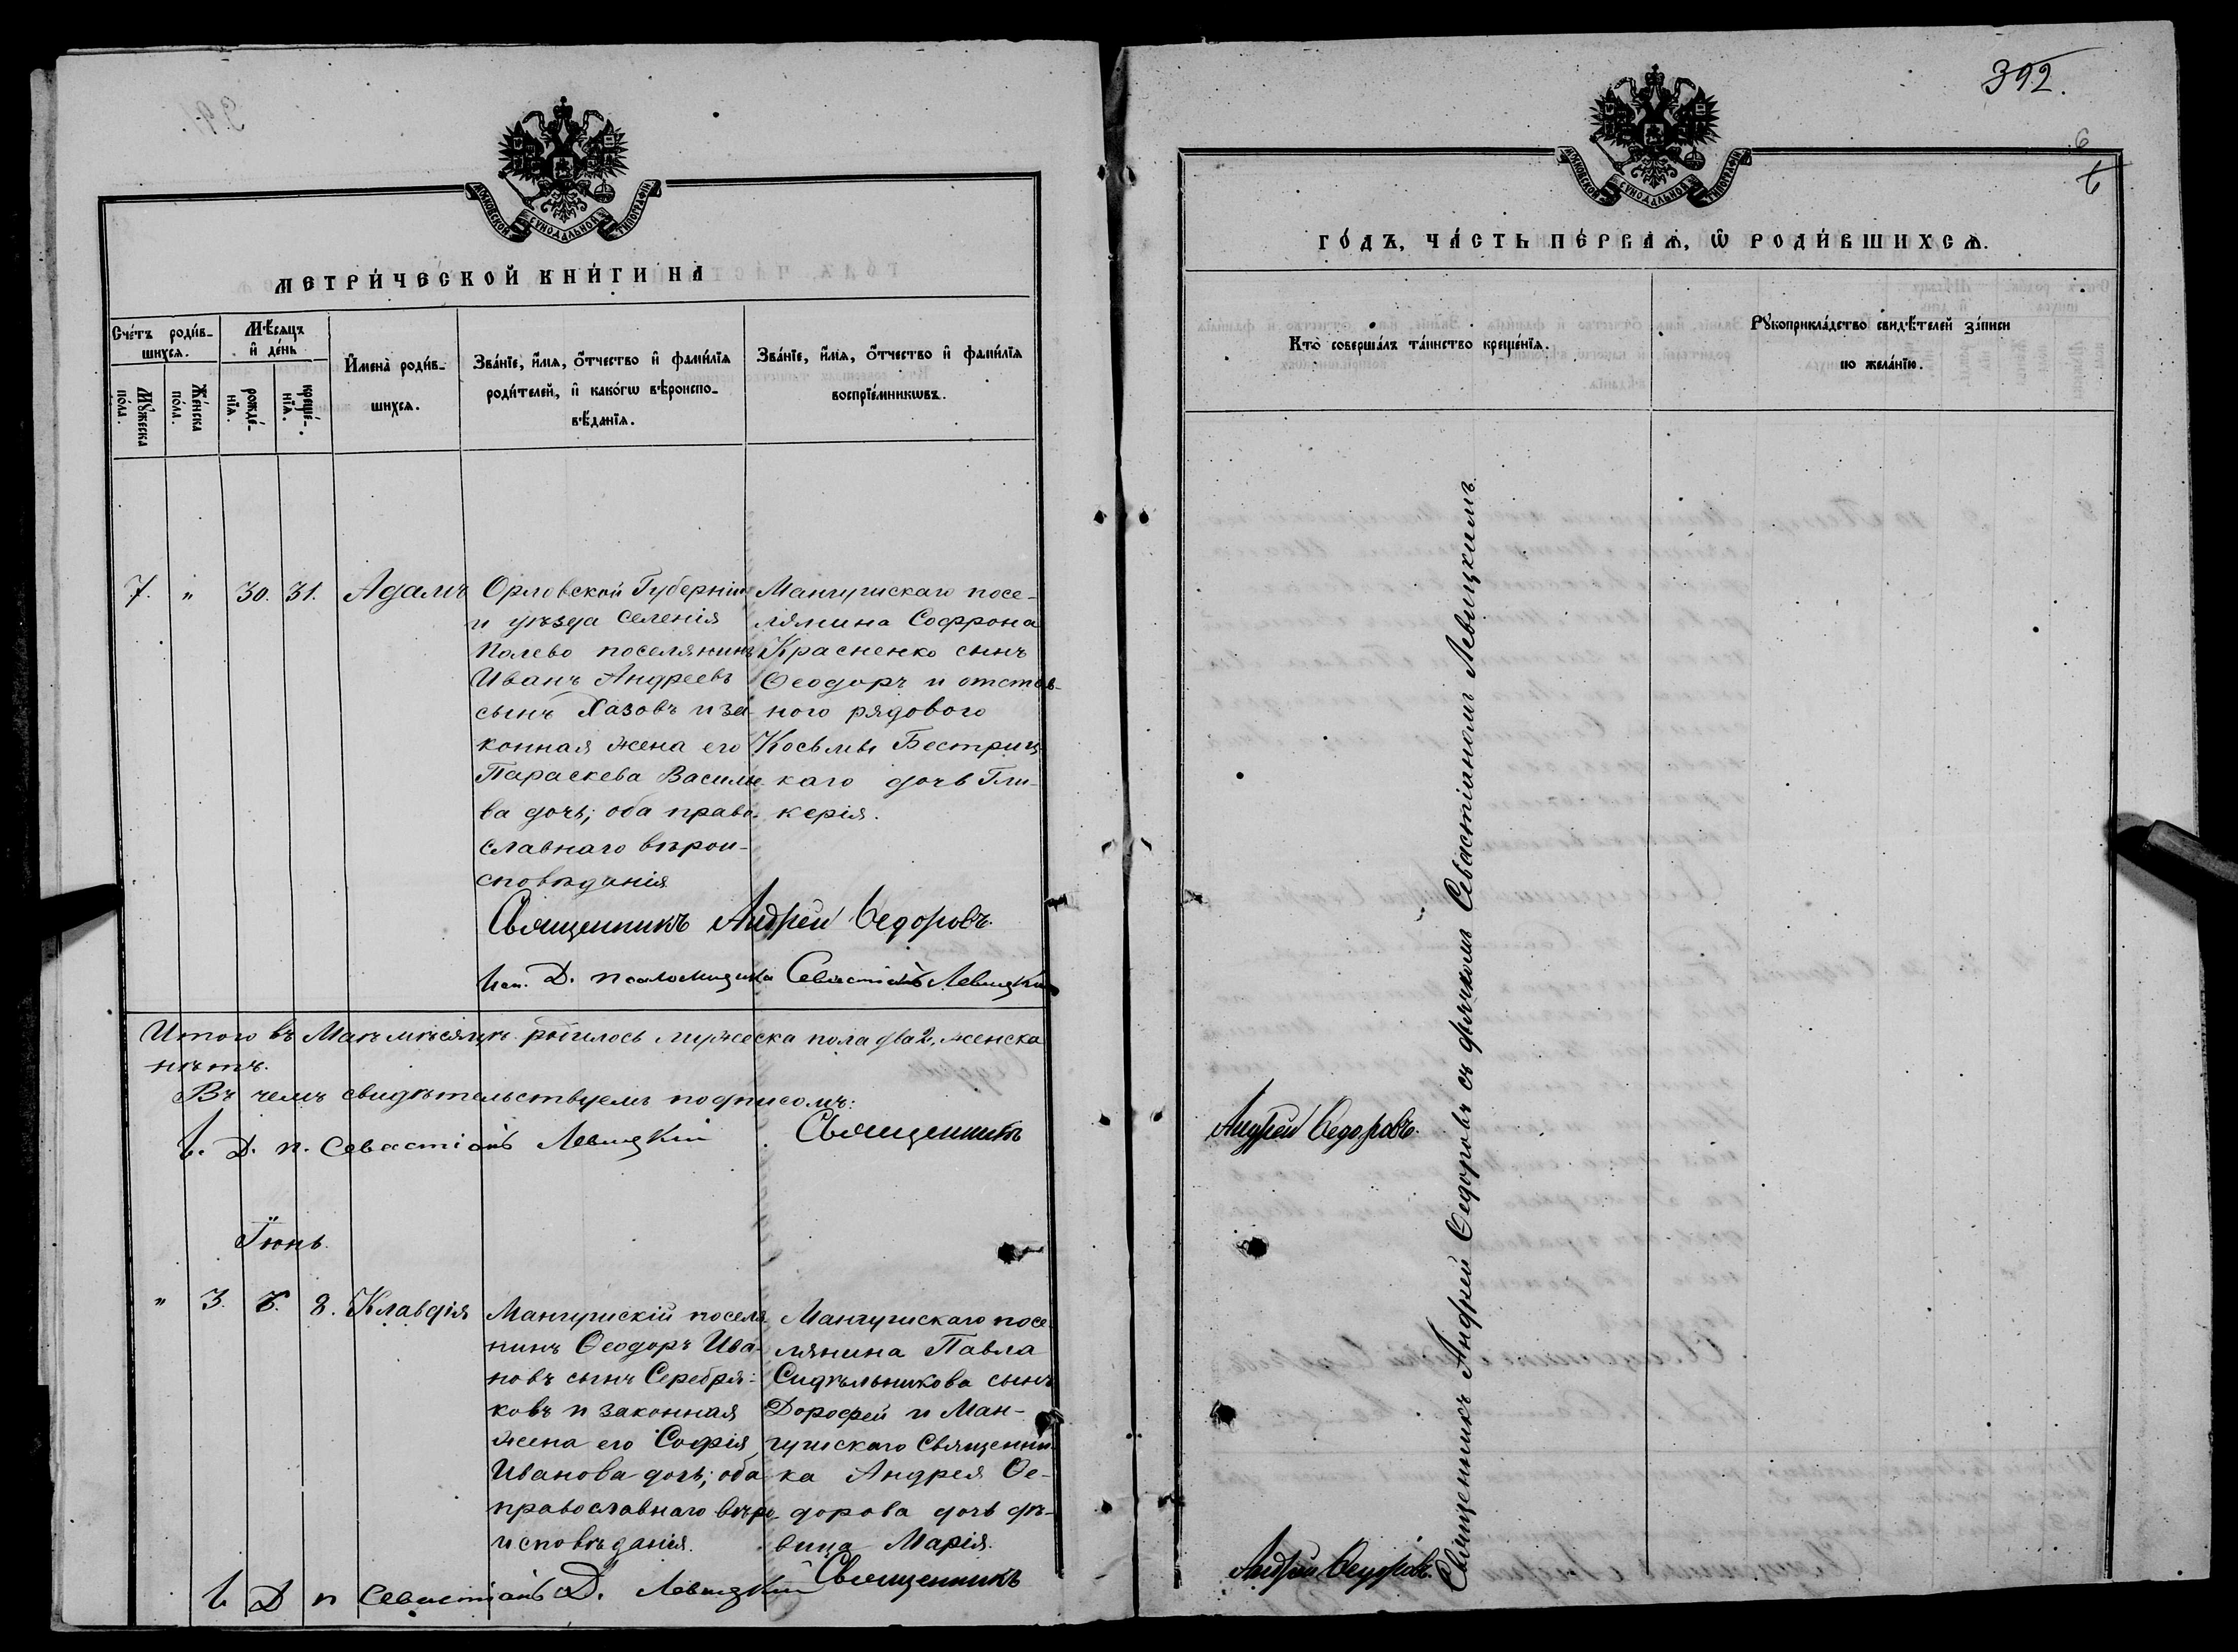 392.
6
6
МОСКОВСКОЙ СѴНОДАЛЬНОЙ ТИПОГРАФІИ
МЕТРИ́ЧЕСКОЙ КНИ́ГИ НА
Сче́тъ роди́в-
шихсѧ.
Мѣ́сѧцъ
и҆ де́нь
Мꙋ́жеска
по́ла.
Же́нска
по́ла.
рожде́-
нїѧ.
креще́-
нїѧ.
И҆мена̀ роди́в-
шихсѧ.
Зва́нїе, и҆́мѧ, ѻ҆́тчество и҆ фами́лїѧ
роди́телей, и҆ како́гѡ вѣроиспо-
вѣ́данїѧ.
Зва́нїе, и҆́мѧ, ѻ҆́тчество и҆ фами́лїѧ
воспрїе́мникѡвъ.
7. " 30. 31. Адамъ
Орловской Губерніи
и уѣзда селенія
Полево поселянинъ
Иванъ Андреевъ
сынъ Хазовъ и за-
конная жена его
Параскева Василье-
ва дочь; оба право-
славнаго вѣрои-
сповѣданія.
Мангушскаго посе-
лянина Софрона
Красненко сынъ
Ѳеодоръ и отстав-
ного рядового
Косьмы Бестриц-
каго дочь Гли-
керія.
Священникъ Андрей Ѳедоровъ.
Исп. Д. псаломщика Севастіанъ Левицкій
Итого въ Маѣ мѣсяцѣ родилось мужеска пола два 2, женска
нѣтъ.
Въ чемъ свидѣтельствуемъ подписомъ:
Д. п. Севастіанъ Левицкій Священникъ
Іюнь.
" 3. 8. Клавдія
Мангушскій поселя-
нинъ Ѳеодоръ Ива-
новъ сынъ Серебря-
ковъ и законная
жена его Софія
Иванова дочь; оба
православнаго вѣро-
исповѣданія.
Мангушскаго посе-
лянина Павла
Сидѣльникова сынъ
Дорофей и Ман-
гушскаго Священни-
ка Андрея Ѳе-
дорова дочь дѣ-
вица Марія.
Д п Севастіанъ Д. Левицкій Священникъ
МОСКОВСКОЙ СѴНОДАЛЬНОЙ ТИПОГРАФІИ
ГО́ДЪ, ЧА́СТЬ ПЕ́РВАѦ, Ѡ҆ РОДИ́ВШИХСѦ.
Кто̀ соверша́лъ та́инство креще́нїѧ.
Рꙋкоприкла́дство свидѣ́телей за́писи
по жела́нїю.
Священникъ Андрей Ѳедоровъ съ дьячкомъ Севастіаномъ Левицкимъ
Андрей Ѳедоровъ.
Андрей Ѳедоровъ.